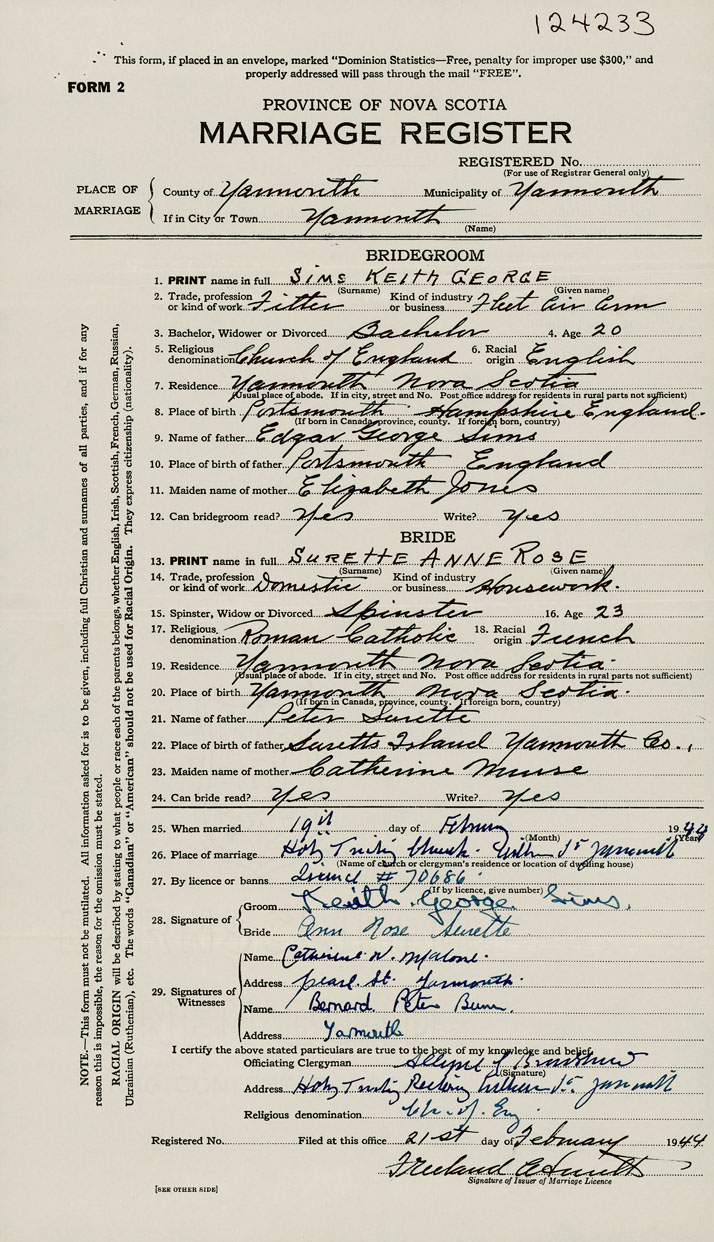 124233
This form, if placed in an envelope, marked "Dominion Statistics—Free, penalty for improper use $300," and
properly addressed will pass through the mail "FREE".
FORM 2
PROVINCE OF NOVA SCOTIA
MARRIAGE REGISTER
REGISTERED No.
(For use of Registrar General only)
PLACE OF MARRIAGE
County of Yarmouth Municipality of Yarmouth
If in City or Town Yarmouth
(Name)
BRIDEGROOM
1. PRINT name in full SIMS KEITH GEORGE
(Surname) (Given name)
2. Trade, profession or kind of work Fitter Kind of industry or business Fleet Air Arm
3. Bachelor, Widower or Divorced Bachelor 4. Age 20
5. Religious denomination Church of England 6. Racial origin English
7. Residence Yarmouth Nova Scotia
(Usual place of abode. If in city, street and No. Post office address for residents in rural parts not sufficient)
8. Place of birth Portsmouth Hampshire England.
(If born in Canada, province, county. If foreign born, country)
9. Name of father Edgar George Sims
10. Place of birth of father Portsmouth England
11. Maiden name of mother Elizabeth Jones
12. Can bridegroom read? Yes Write? Yes
BRIDE
13. PRINT name in full SURETTE ANNE ROSE
(Surname) (Given name)
14. Trade, profession or kind of work Domestic Kind of industry or business Housework.
15. Spinster, Widow or Divorced Spinster 16. Age 23
17. Religious denomination Roman Catholic 18. Racial origin French
19. Residence Yarmouth Nova Scotia.
(Usual place of abode. If in city, street and No. Post office address for residents in rural parts not sufficient)
20. Place of birth Yarmouth Nova Scotia.
(If born in Canada, province, county. If foreign born, country)
21. Name of father Peter Surette
22. Place of birth of father Suretts Island Yarmouth Co.,
23. Maiden name of mother Catherine Muise
24. Can bride read? Yes Write? Yes
25. When married 19th day of February 1944
(Month) (Year)
26. Place of marriage Holy Trinity Church. William St Yarmouth
(Name of church or clergyman's residence or location of dwelling house)
27. By licence or banns Licence # 70686.
(If by licence, give number)
28. Signature of
Groom Keith George Sims.
Bride Ann Rose Surette
29. Signatures of Witnesses
Name Catherine W. Malone.
Address Pearl St. Yarmouth.
Name Bernard Peter
Address Yarmouth
I certify the above stated particulars are true to the best of my knowledge and belief.
Officiating Clergyman
(Signature)
Address Holy Trinity Rectory William St. Yarmouth
Religious denomination Ch. of. Eng.
Registered No. Filed at this office 21st day of February 1944
Freeland
Signature of Issuer of Marriage Licence
[SEE OTHER SIDE]
NOTE.—This form must not be mutilated. All information asked for is to be given, including full Christian and surnames of all parties, and if for any
reason this is impossible, the reason for the omission must be stated.
RACIAL ORIGIN will be described by stating to what people or race each of the parents belongs, whether English, Irish, Scottish, French, German, Russian,
Ukrainian (Ruthenian), etc. The words "Canadian" or "American" should not be used for Racial Origin. They express citizenship (nationality).